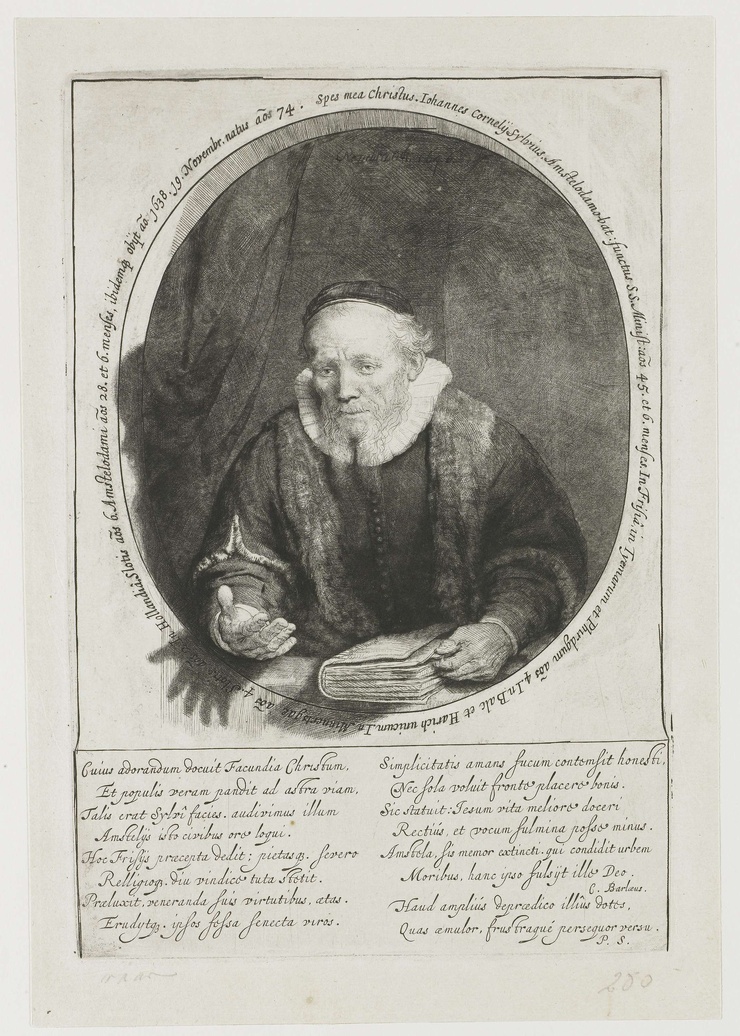 Spes mea Christus. Iohannes Cornelij Sylvius, Amstelodamo-bat: functus S.S. Minist: aõs 45. et 6. menses. In Frisiâ, in Tyemarum et Phirdgum aõs 4. In Balc et Harich unicum. In Minnertsgae aõs 4. Slotis aõs 6. Amstelodami aõs 28. et 6. menses, ibidemq₃ obijt aõ. 1638. 19. Novembr. natus aõs 74.
Rembrandt 1646
Cuius adorandum docuit Facundia Christum,
Et populis veram pandit ad astra viam,
Talis erat Sylvî facies. audivimus illum
Amstelijs isto civibus ore loqui.
Hoc Frisijs præcepta dedit; pietasq₃. severo
Relligioq₃. diu vindice tuta stetit.
Præluxit, veneranda suis virtutibus, ætas.
Erudytq₃. ipsos fessa senecta viros.
Simplicitatis amans fucum contemsit honesti,
Nec sola voluit fronte placere bonis.
Sic statuit: Iesum vita meliore doceri
Rectiùs, et vocum fulmina posse minus.
Amstela, sis memor extincti. qui condidit urbem
Moribus, hanc ipso fulsijt ille Deo.
C. Barlæus.
Haud ampliús deprædico illîus dotes,
Quas æmulor, frustraque persequor versu.
P. S.
250